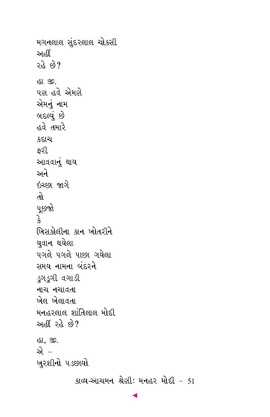 મગનલાલ સુંદરલાલ ચોક્સી
અહીં
રહે છે?
હા જી.
પણ હવે એમણે
એમનું નામ
બદલ્યું છે
હવે તમારે
કદાચ
ફરી
આવવાનું થાય
અને
ઇચ્છા જાગે
તો
પૂછજો
કે
ખિસકોલીના કાન ખોતરીને
યુવાન થયેલા
પગલે પગલે પાછા ગયેલા
સમય નામના બંદરને
ડુગડુગી વગાડી
નાચ નચાવતા
ખેલ ખેલાવતા
મનહરલાલ શાંતિલાલ મોદી
અહીં રહે છે?
હા, જી.
એ –
ખુરશીનો પડછાયો
કાવ્ય-આચમન શ્રેણી: મનહર મોદી – 51